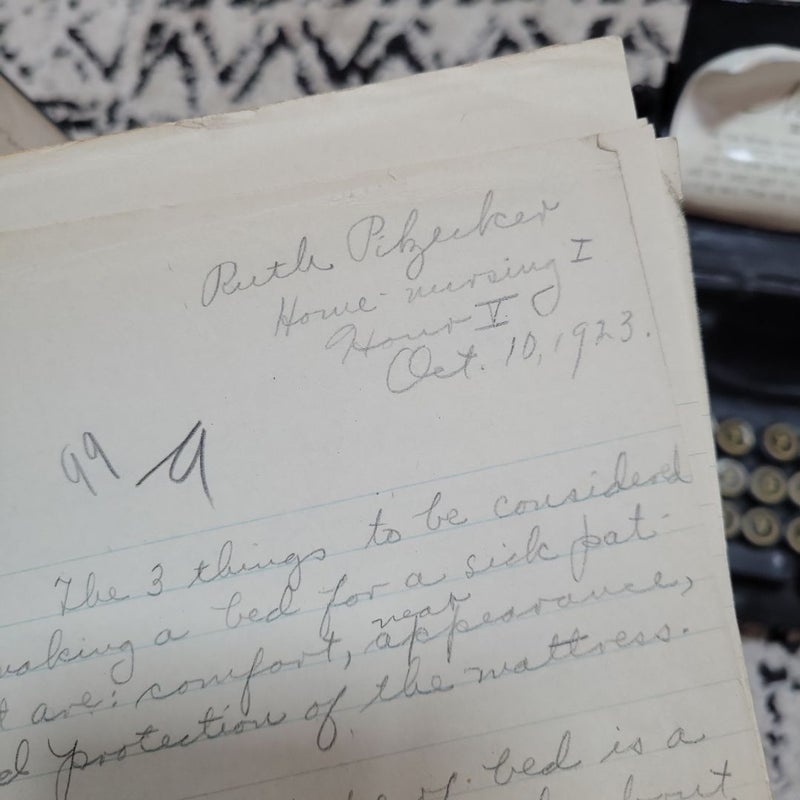 Ruth Pitzecker
Home-nursing I
Hour V
Oct. 10, 1923.
99 A
The 3 things to be considered
making a bed for a sick pat-
t are: comfort, near appearance,
d protection of the mattress.
of bed is a
about